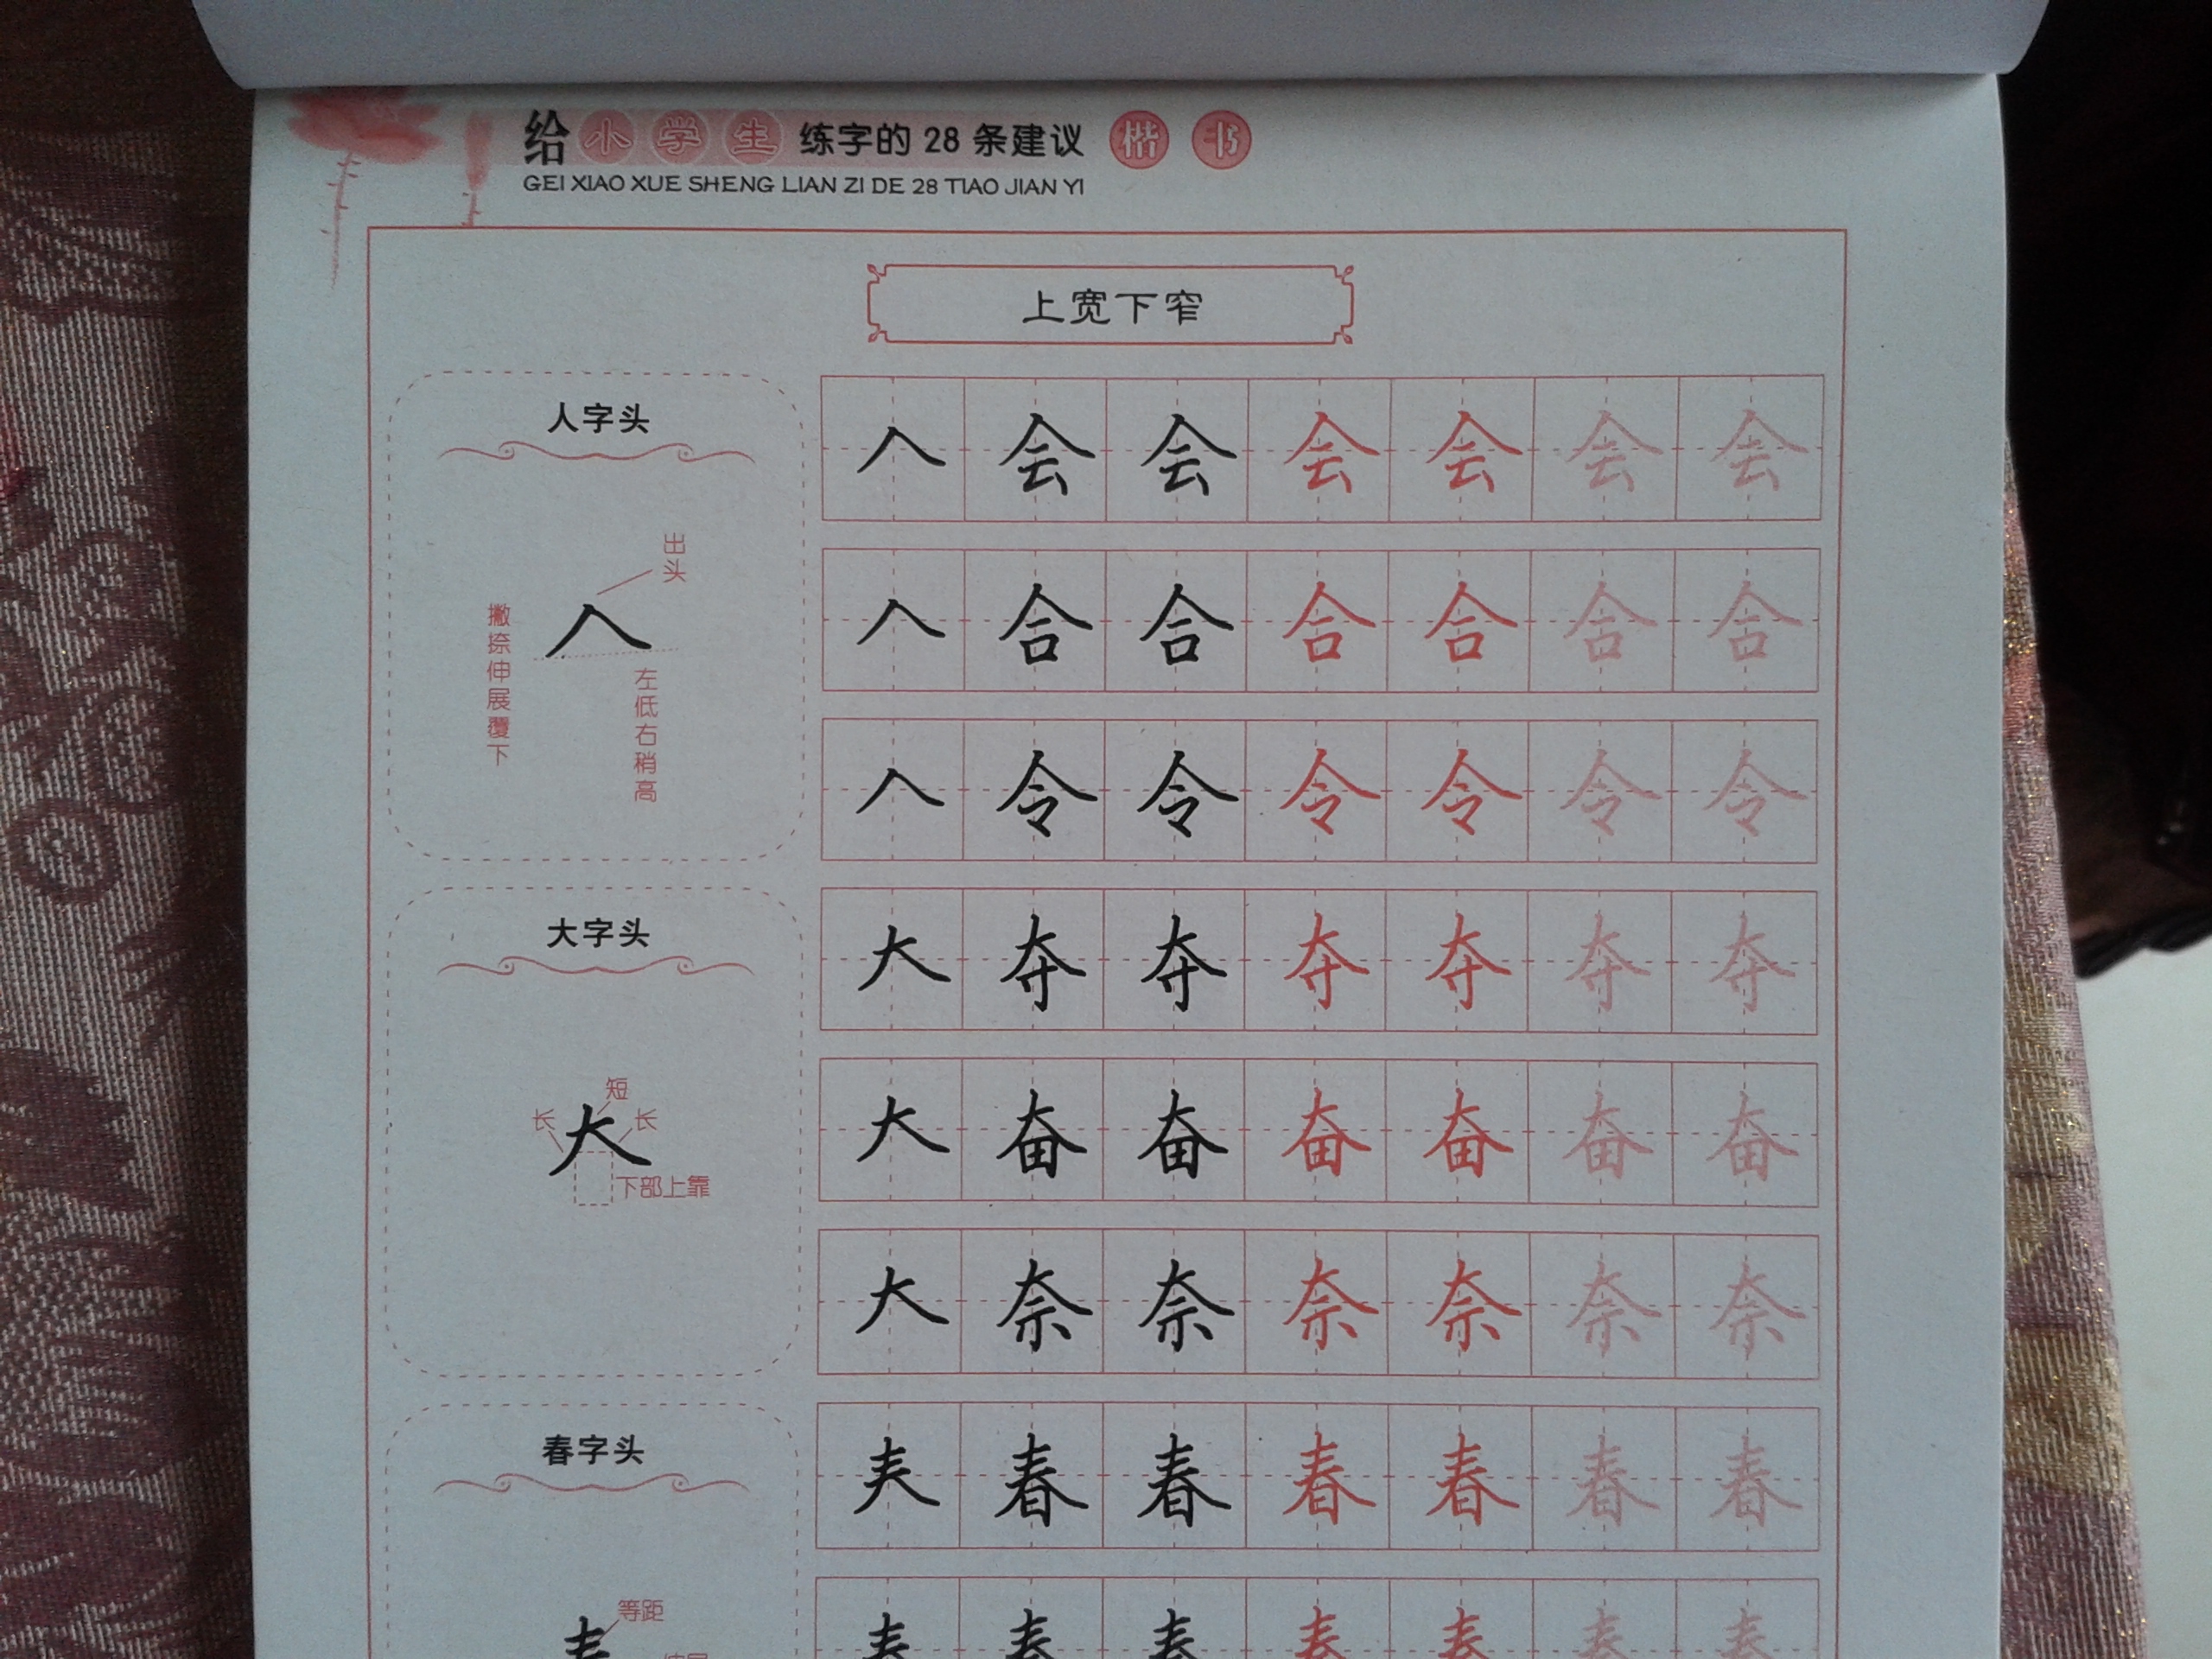 给小学生练字的28条建议 楷书
GEI XIAO XUE SHENG LIAN ZI DE 28 TIAO JIAN YI
上宽下窄
人字头
出头
撇捺伸展覆下
左低右稍高
人 会 会 会 会 会 会
人 合 合 合 合 合 合
人 令 令 令 令 令 令
大字头
短
长 大 长
下部上靠
大 夺 夺 夺 夺 夺 夺
大 奋 奋 奋 奋 奋 奋
大 奈 奈 奈 奈 奈 奈
春字头
等距
𡗗 春 春 春 春 春 春